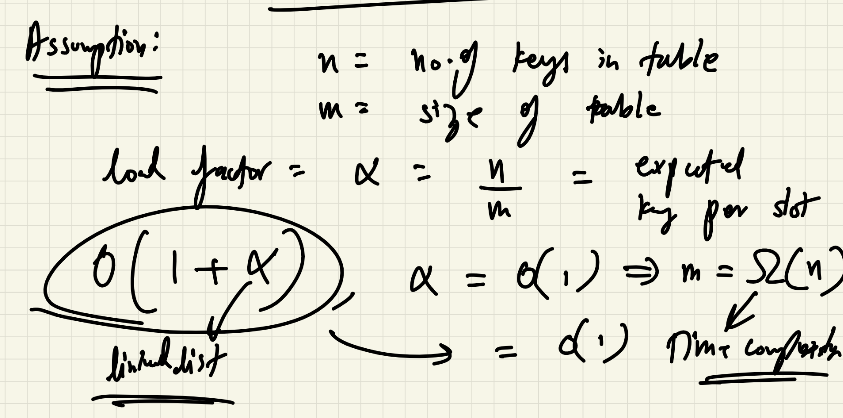 Assumption:
n = no. of keys in table
m = size of table
load factor = α = n/m = expected key per slot
O(1 + α), α = O(1) ⇒ m = Ω(n)
linked list = O(1) Time complexity